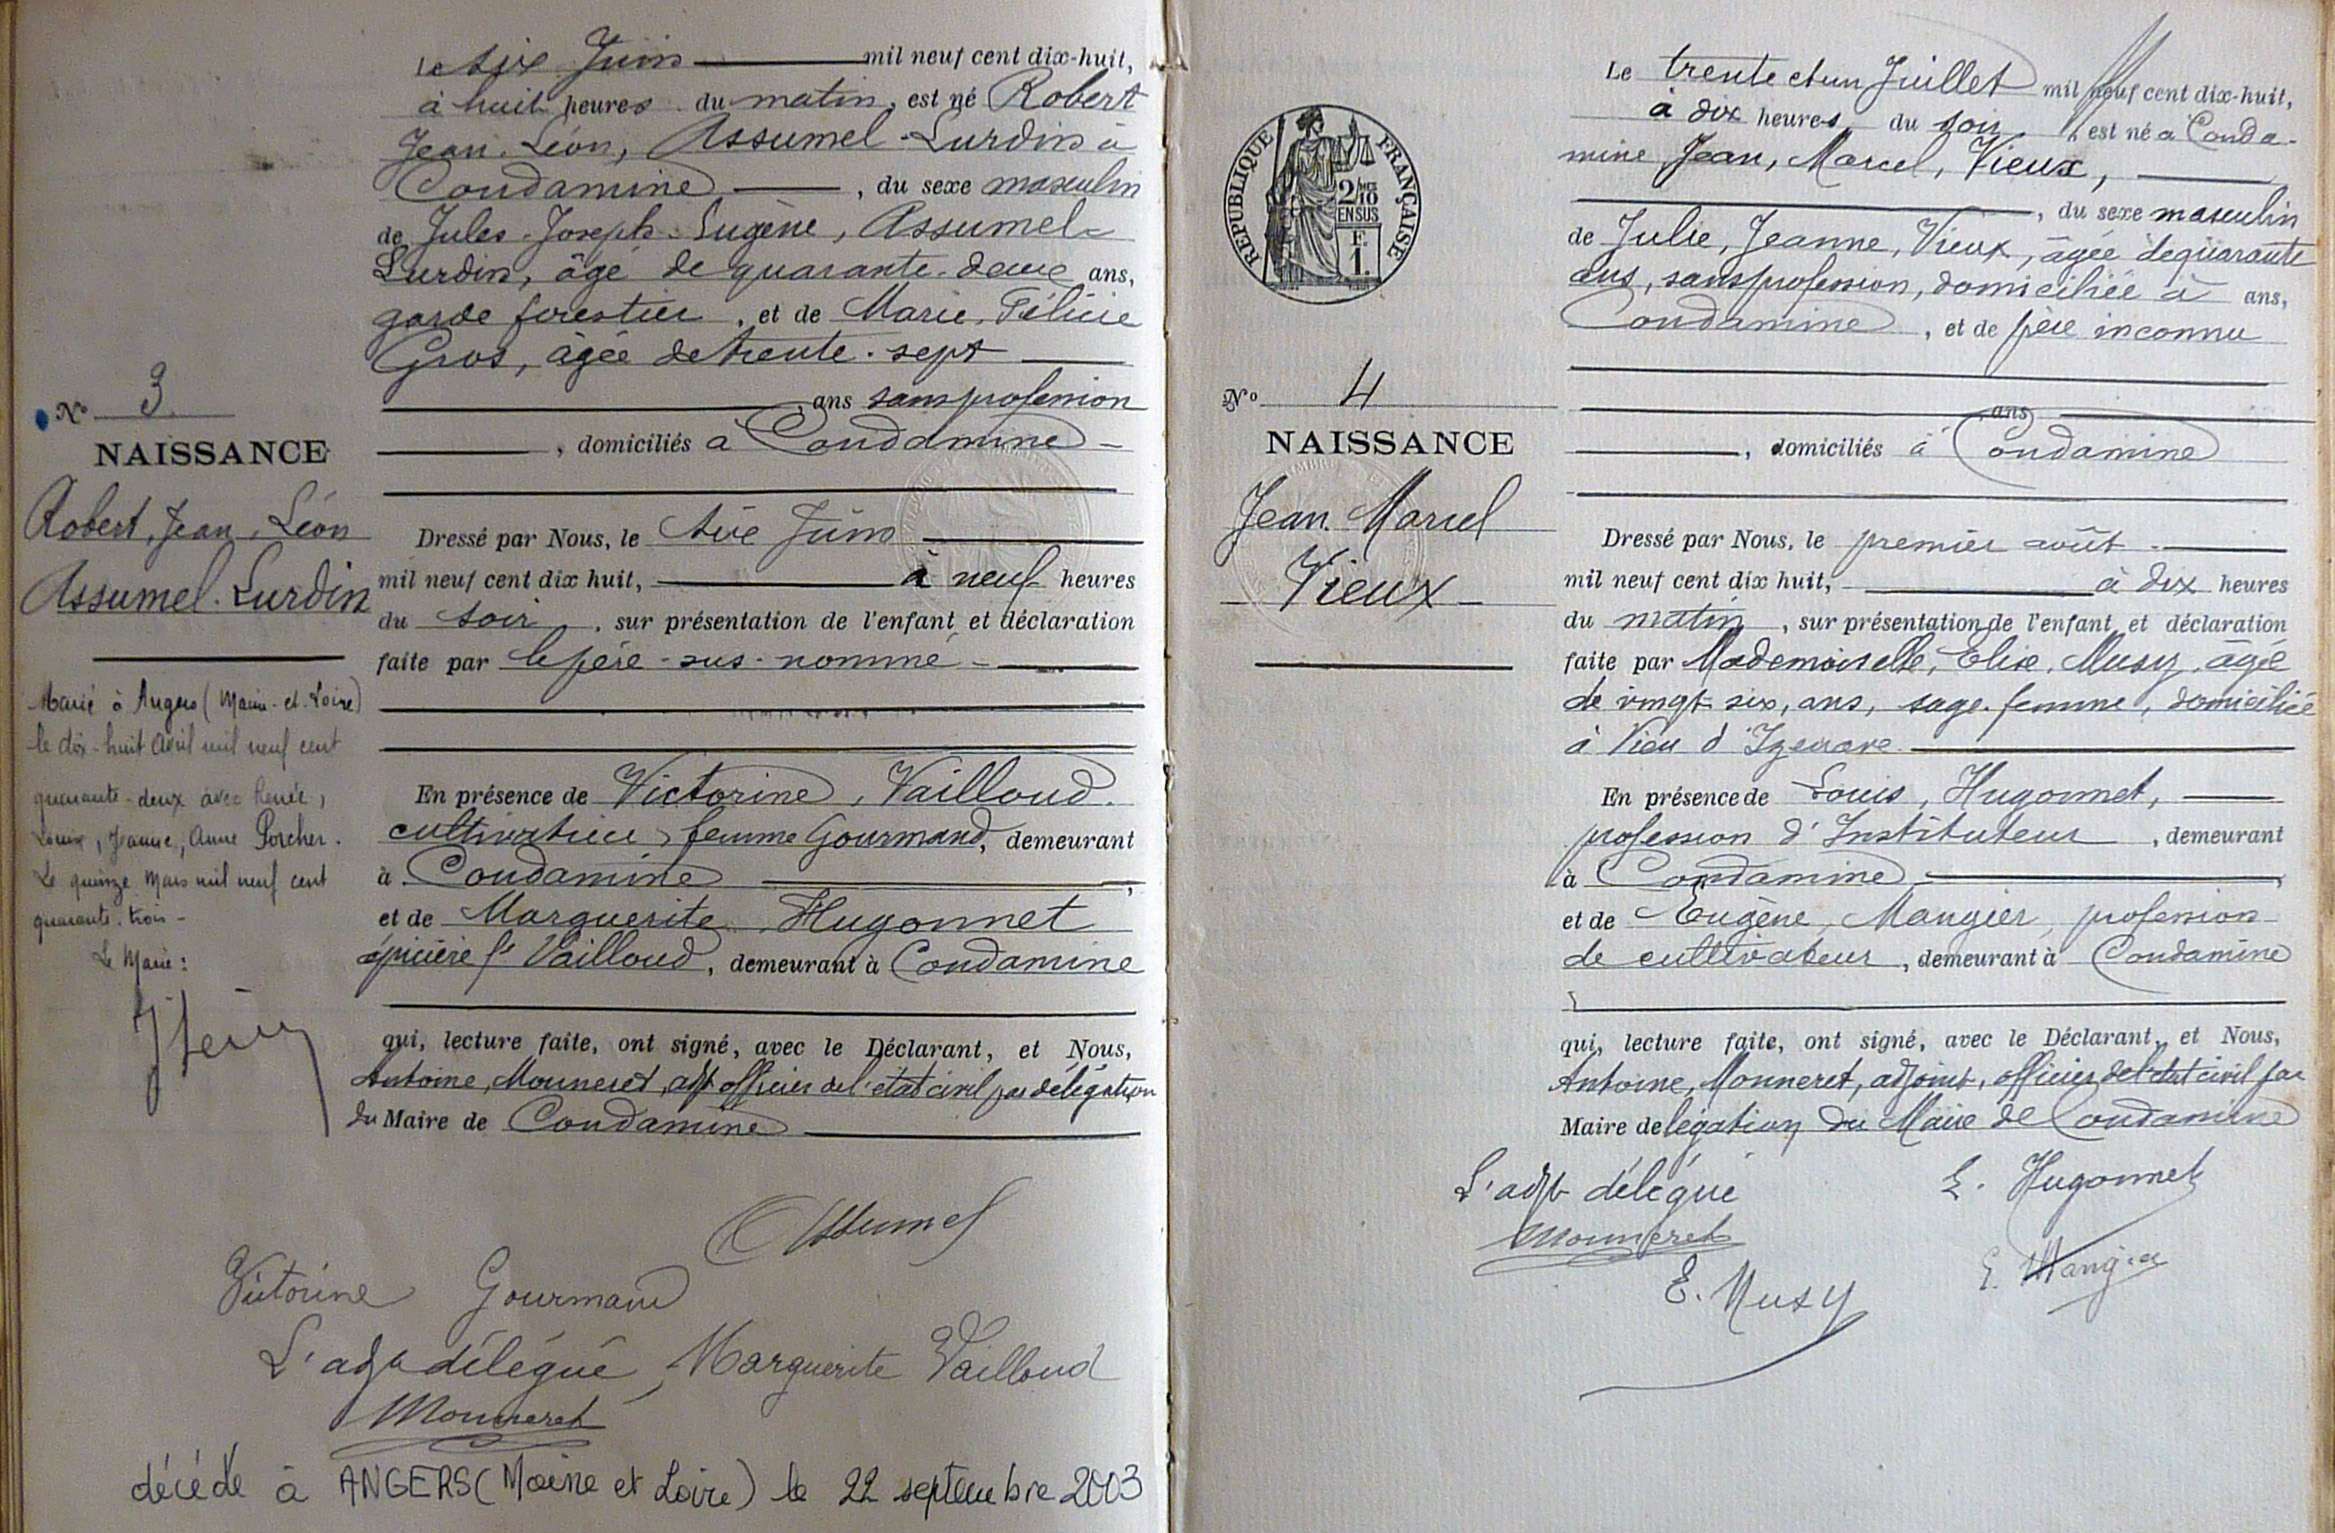 Le six Juin mil neuf cent dix-huit,
à huit heures du matin, est né Robert
Jean Léon, Assumel-Lurdin à
Condamine, du sexe masculin
de Jules Joseph Eugène, Assumel-
Lurdin, âgé de quarante-deux ans,
garde forestier, et de Marie, Félicie
Gros, âgée de trente-sept
ans sans profession
, domiciliés à Condamine
Dressé par Nous, le six Juin
mil neuf cent dix huit, à neuf heures
du soir, sur présentation de l'enfant et déclaration
faite par le père sus-nommé
En présence de Victorine, Vailloud
cultivatrice, femme Gourmand, demeurant
à Condamine,
et de Marguerite Hugonnet
épicière fe Vailloud, demeurant à Condamine
qui, lecture faite, ont signé, avec le Déclarant, et Nous,
Antoine, Monneret, adjt officier de l'état civil par délégation
du Maire de Condamine
Assumel
Victorine Gourmand
L'adjt délégué, Marguerite Vailloud
Monneret
décédé à ANGERS (Maine et Loire) le 22 septembre 2003
No 3
NAISSANCE
Robert, Jean, Léon
Assumel-Lurdin
Marié à Angers (Maine-et-Loire)
le dix-huit avril mil neuf cent
quarante-deux avec Renée,
Jeanne, Anne Porcher.
Le quinze Mars mil neuf cent
quarante-trois-
Le Maire:
RÉPUBLIQUE FRANÇAISE
2/10
EN SUS
1F
No 4
NAISSANCE
Jean Marcel
Vieux
Le trente et un Juillet mil neuf cent dix-huit,
à dix heures du soir, est né à Conda-
mine, Jean, Marcel, Vieux,
, du sexe masculin
de Julie, Jeanne, Vieux, âgée de quarante
ans, sans profession, domiciliée à ans,
Condamine, et de père inconnu
ans
, domiciliés à Condamine
Dressé par Nous, le premier août
mil neuf cent dix huit, à dix heures
du matin, sur présentation de l'enfant et déclaration
faite par Mademoiselle, Elise, Musy, âgée
de vingt-six, ans, sage-femme, domiciliée
à Vieu d'Izenave
En présence de Louis, Hugonnet,
profession d'Instituteur, demeurant
à Condamine,
et de Eugène, Mangier, profession
de cultivateur, demeurant à Condamine
qui, lecture faite, ont signé, avec le Déclarant, et Nous,
Antoine, Monneret, adjoint, officier de l'état civil par
Maire délégation du Maire de Condamine
L'adjt délégué L. Hugonnet
Monneret
E. Musy E. Mangier